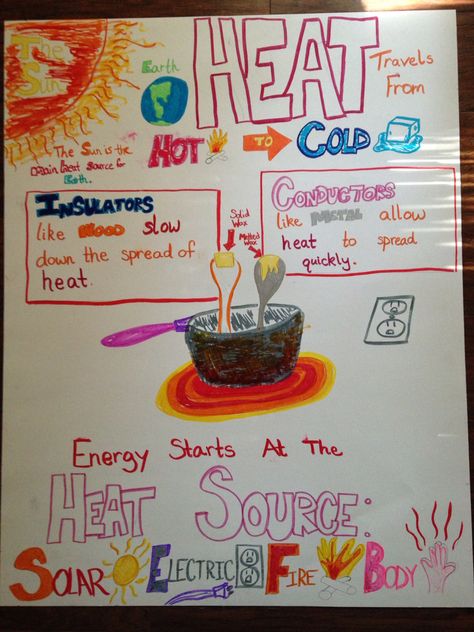 The Sun
Earth
HEAT
Travels From
The Sun is the main heat source for Earth.
HOT TO COLD
INSULATORS
like WOOD slow
down the spread of
heat.
Solid
Wax
Melted
Wax
CONDUCTORS
like METAL allow
heat to spread
quickly.
Energy Starts At The
HEAT SOURCE:
SOLAR ELECTRIC FIRE BODY